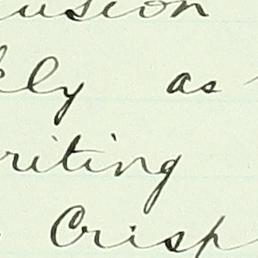 usion
kly as
riting
Crisp